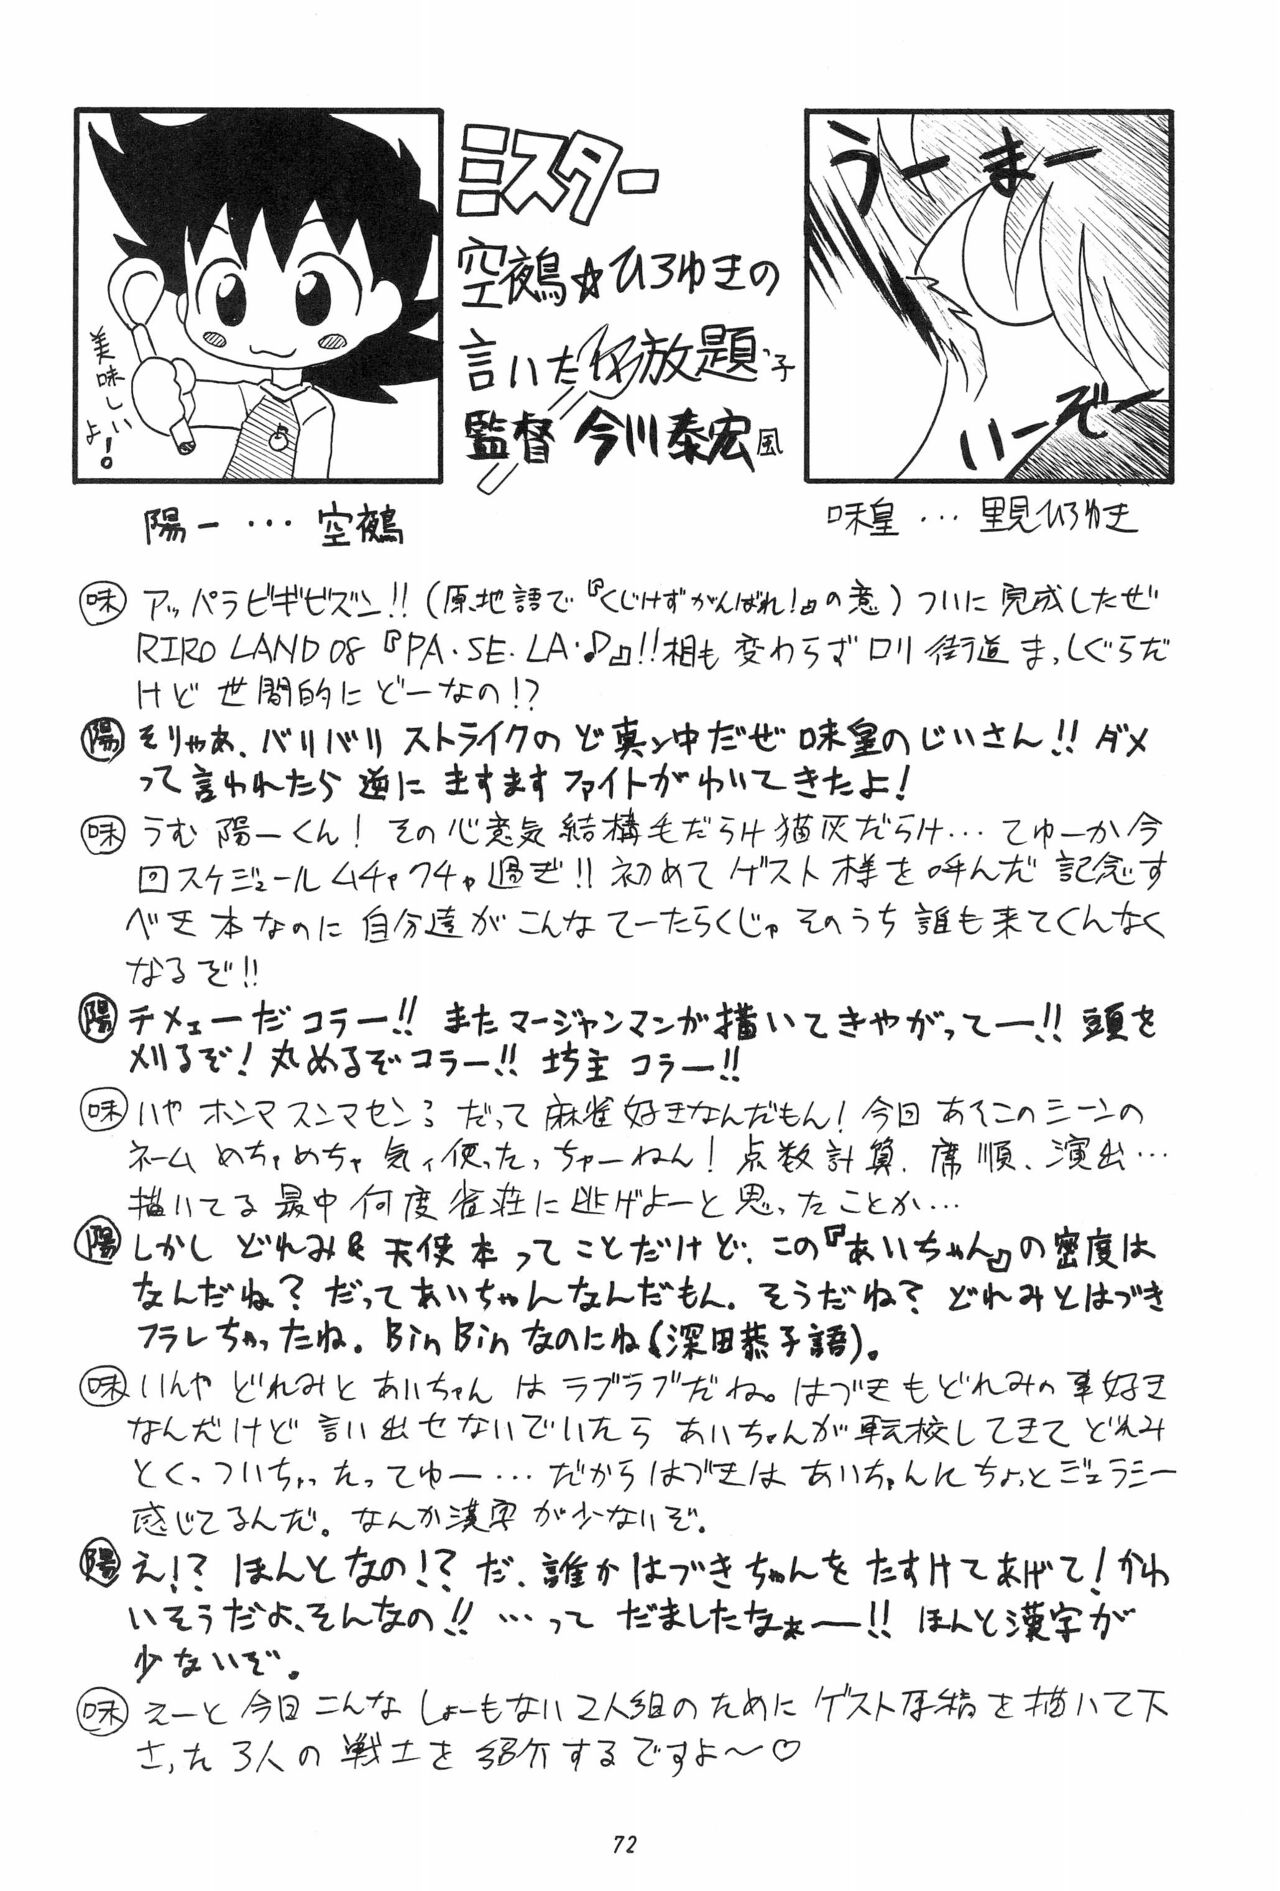 美味しいよ!
ミスター
空鵺☆ひろゆきの
言いた放題
監督 今川泰宏風
うーまー
いーぞー
陽一・・・空鵺
味皇・・・里見ひろゆき
味 アッパラビギビズン!!(原地語で『くじけずがんばれ!』の意)ついに完成したぜ
RIRO LAND 08『PA・SE・LA・♪』!!相も変わらずロリ街道まっしぐらだ
けど世間的にどーなの!?
陽 そりゃあ、バリバリストライクのど真ン中だぜ味皇のじいさん!!ダメ
って言われたら逆にますますファイトがわいてきたよ!
味 うむ陽一くん!その心意気結構毛だらけ猫灰だらけ…てゆーか今
回スケジュールムチャクチャ過ぎ!!初めてゲスト様を呼んだ記念す
べき本なのに自分達がこんなてーたらくじゃそのうち誰も来てくんなく
なるぞ!!
陽 チメェーだコラー!!またマージャンマンガ描いてきやがってー!!頭を
刈るぞ!丸めるぞコラー!!坊主コラー!!
味 いやホンマスンマセンろ だって麻雀好きなんだもん!今回あそこのシーンの
ネームめちゃめちゃ気ィ使ったっちゅーねん!点数計算、席順、演出…
描いてる最中何度雀荘に逃げよーと思ったことか…
陽 しかしどれみ&天使本ってことだけど、この『あいちゃん』の密度は
なんだね?だってあいちゃんなんだもん。そうだね?どれみとはづき
フラレちゃったね。Bin Binなのにね(深田恭子語)。
味 いんやどれみとあいちゃんはラブラブだね。はづきもどれみの事好き
なんだけど言い出せないでいたらあいちゃんが転校してきてどれみ
とくっついちゃったってゆー…だからはづきはあいちゃんにちょっとジェラシー
感じてるんだ。なんか漢字が少ないぞ。
陽 え!?ほんとなの!?だ、誰かはづきちゃんをたすけてあげて!かわ
いそうだよ、そんなの!!…ってだましたなぁー!!ほんと漢字が
少ないぞ。
味 えーと今回こんなしょーもない2人組のためにゲスト原稿を描いて下
さった3人の戦士を紹介するですよ〜♡
72